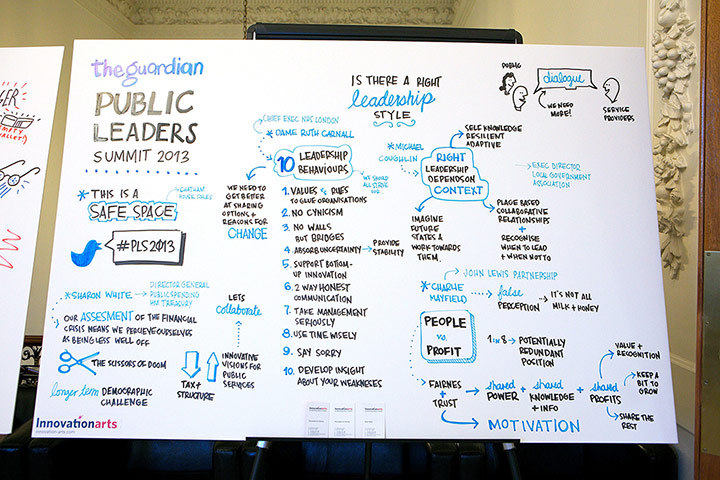 theguardian
PUBLIC
LEADERS
SUMMIT 2013
* THIS IS A
SAFE SPACE
CHATHAM
HOUSE RULES
#PLS2013
* SHARON WHITE
DIRECTOR GENERAL
PUBLIC SPENDING
HM TREASURY
OUR ASSESMENT OF THE FINANCIAL
CRISIS MEANS WE PERCIEVE OURSELVES
AS BEING LESS WELL OFF
THE SCISSORS OF DOOM
longer term DEMOGRAPHIC
CHALLENGE
Innovationarts
innovation-arts.com
TAX +
STRUCTURE
LETS
collaborate
INNOVATIVE
VISIONS FOR
PUBLIC
SERVICES
WE NEED TO
GET BETTER
AT SHARING
OPTIONS +
REASONS FOR
CHANGE
CHIEF EXEC NHS LONDON
* DAME RUTH CARNALL
10 LEADERSHIP
BEHAVIOURS
WE SHOULD
ALL STRIVE
FOR
1. VALUES + RULES
TO GLUE ORGANISATIONS
2. NO CYNICISM
3. NO WALLS
BUT BRIDGES
4. ABSORB UNCERTAINTY
PROVIDE
STABILITY
5. SUPPORT BOTTOM-
UP INNOVATION
6. 2 WAY HONEST
COMMUNICATION
7. TAKE MANAGEMENT
SERIOUSLY
8. USE TIME WISELY
9. SAY SORRY
10. DEVELOP INSIGHT
ABOUT YOUR WEAKNESSES
IS THERE A RIGHT
leadership
STYLE
* MICHAEL
COUGHLIN
RIGHT
LEADERSHIP
DEPENDS ON
CONTEXT
SELF KNOWLEDGE
RESILIENT
ADAPTIVE
EXEC DIRECTOR
LOCAL GOVERNMENT
ASSOCIATION
IMAGINE
FUTURE
STATES &
WORK TOWARDS
THEM.
PLACE BASED
COLLABORATIVE
RELATIONSHIPS
+
RECOGNISE
WHEN TO LEAD
+ WHEN NOT TO
PUBLIC
dialogue
WE NEED
MORE!
SERVICE
PROVIDERS
JOHN LEWIS PARTNERSHIP
* CHARLIE
MAYFIELD
false
PERCEPTION
IT'S NOT ALL
MILK + HONEY
PEOPLE
vs.
PROFIT
1 IN 8
POTENTIALLY
REDUNDANT
POSITION
FAIRNES
+
TRUST
shared
POWER
+
shared
KNOWLEDGE
+ INFO
+
shared
PROFITS
VALUE +
RECOGNITION
KEEP A
BIT TO
GROW
SHARE THE
REST
MOTIVATION